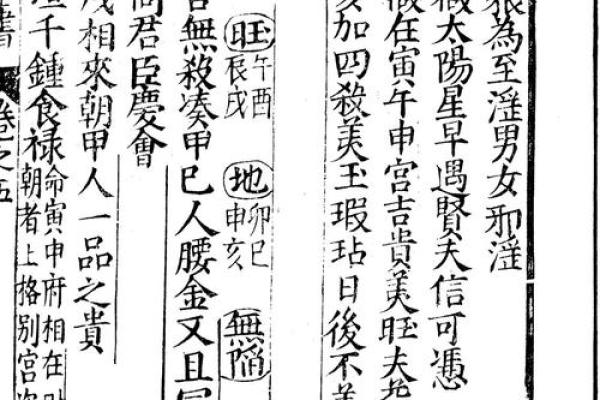 狼為至淫男女邪淫
太陽星早遇賢夫信可憑
在寅午申宮吉貴美旺夫
加四殺美玉瑕玷日後不美
旺 午酉
辰戌
地 卯巳
申亥
無陷
無殺凑甲巳人腰金又且
君臣慶會
相來朝甲人一品之貴
千鍾食禄
命寅申府相在
朝者上格别宮
書 卷之五